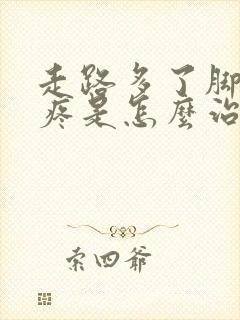 走路多了脚
疼是怎麼治
索四爺